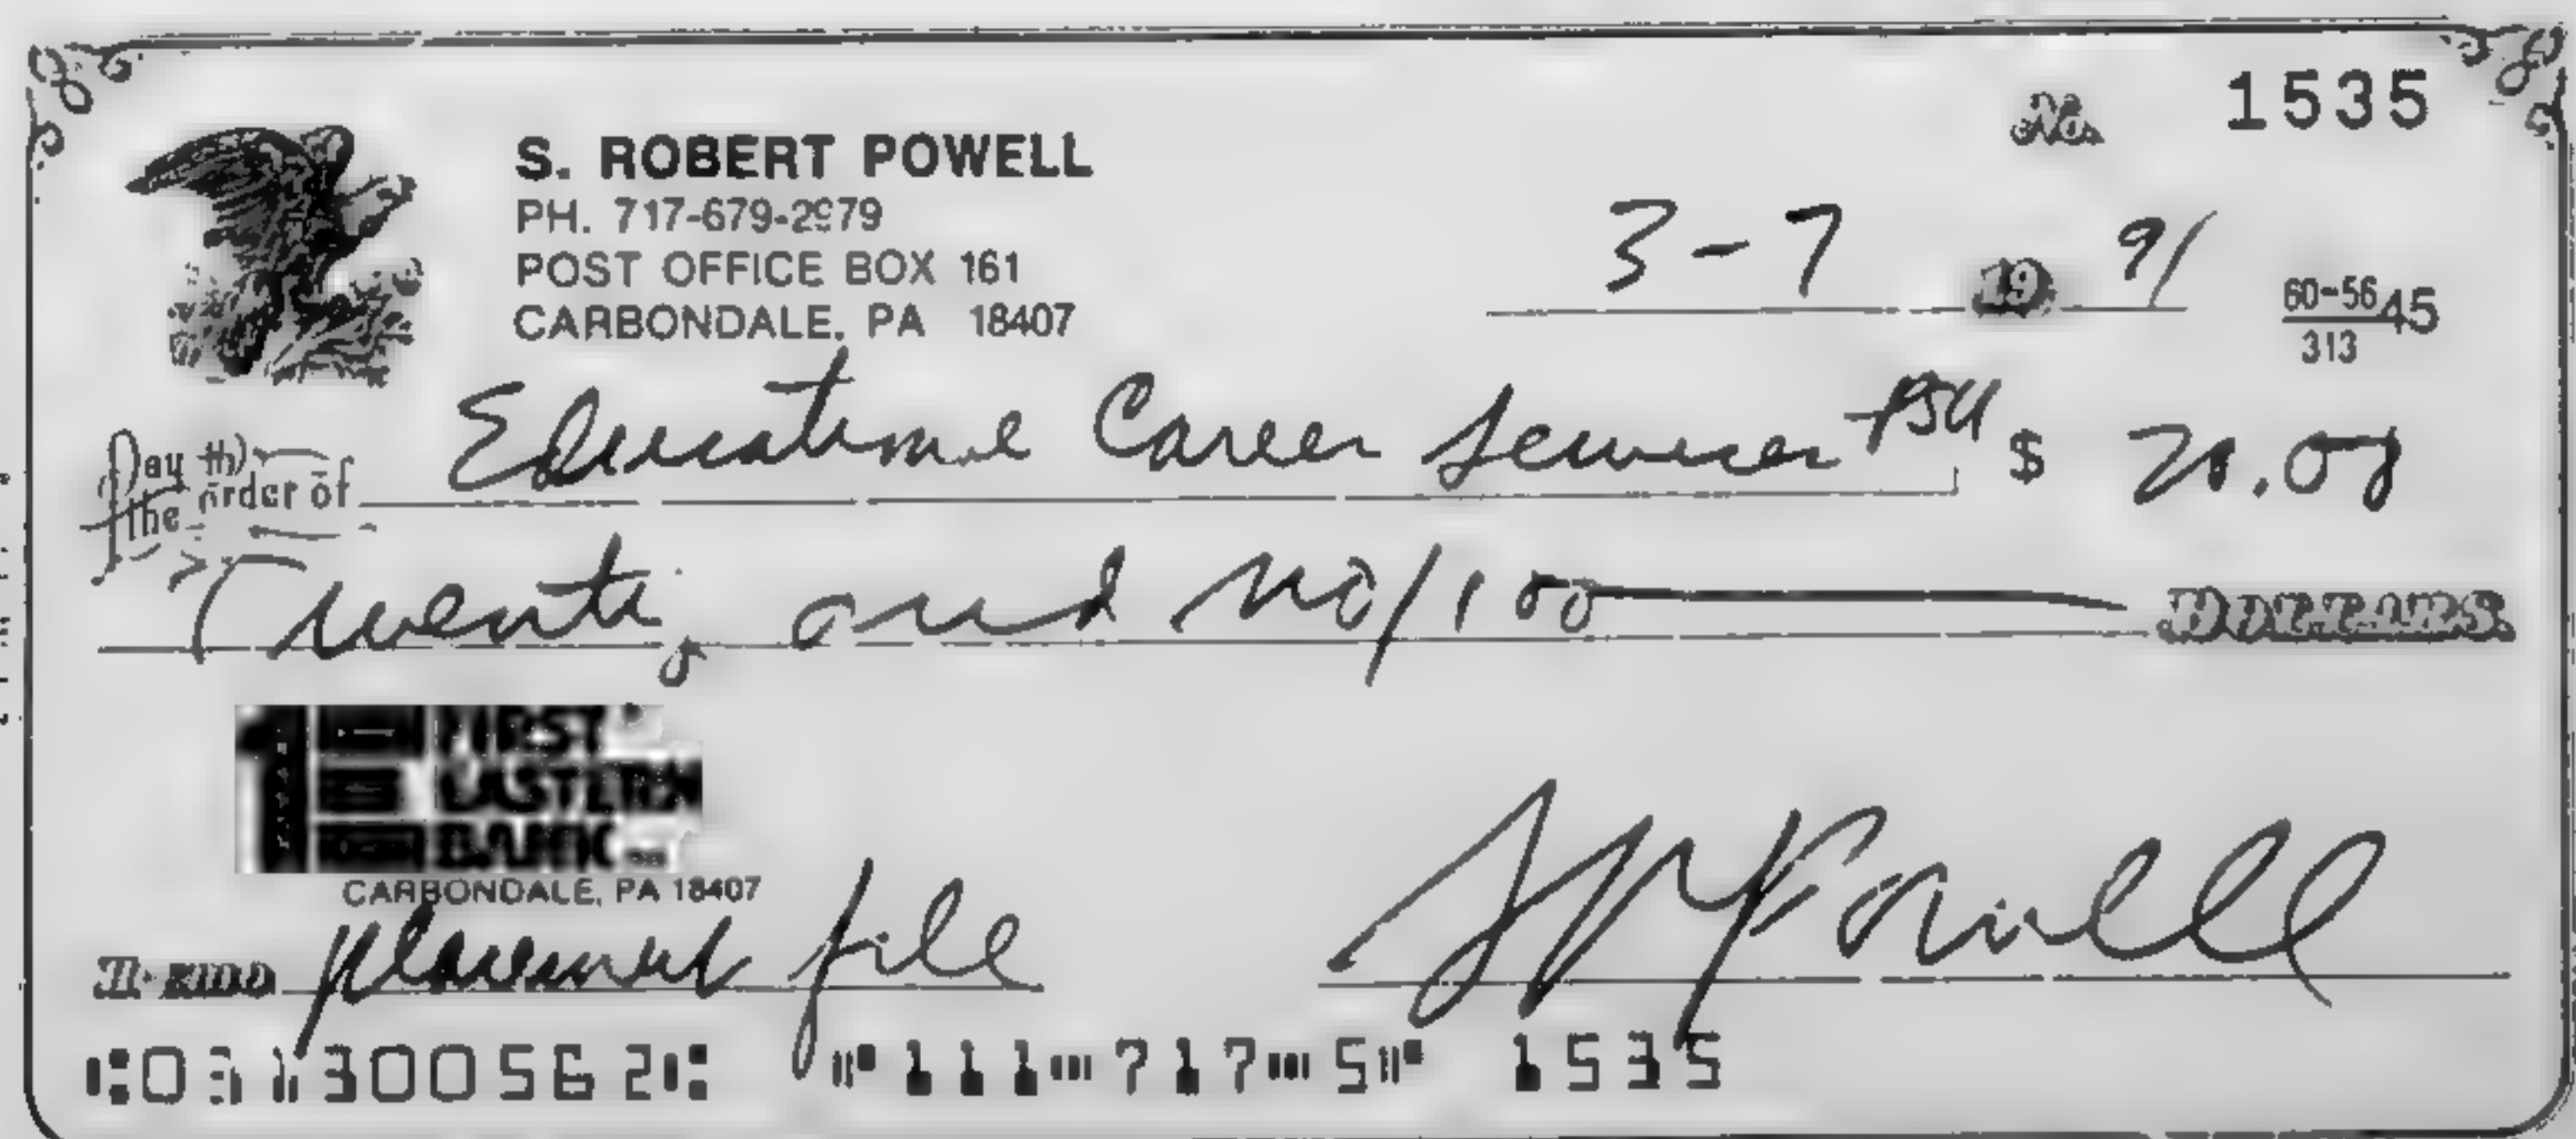 No. 1535
S. ROBERT POWELL
PH. 717-679-2979
POST OFFICE BOX 161
CARBONDALE, PA 18407
3-7 19 91
60-5645
313
Pay to the order of Educational Career Services PSU $ 20.00
Twenty and no/100 DOLLARS
FIRST EASTERN BANK
CARBONDALE, PA 18407
placement file
S R Powell
⑆031300562⑆ ⑈111⑉717⑉5⑈ 1535